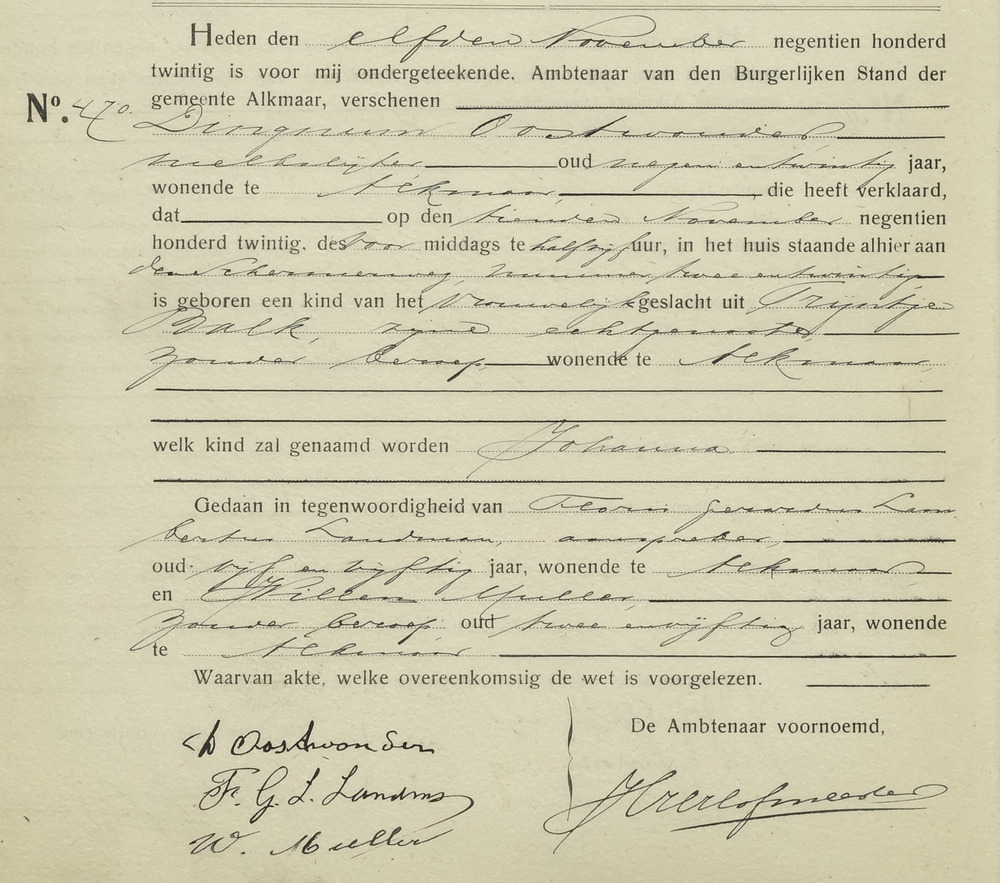 Heden den elfden November negentien honderd
twintig is voor mij ondergeteekende, Ambtenaar van den Burgerlijken Stand der
No. 470. gemeente Alkmaar, verschenen
Dingnum Oostwouder
melkslijter oud negen en twintig jaar,
wonende te Alkmaar, die heeft verklaard,
dat op den tienden November negentien
honderd twintig, des voor middags te half vijf uur, in het huis staande alhier aan
den Schermerweg, nummer twee en twintig
is geboren een kind van het Vrouwelijk geslacht uit Trijntje
Balk, zijne echtgenoote,
zonder beroep wonende te Alkmaar,
welk kind zal genaamd worden Johanna
Gedaan in tegenwoordigheid van Floris Gerardus Lam
bertus Landman, aanspreker,
oud vijf en vijftig jaar, wonende te Alkmaar
en Willem Muller,
zonder beroep oud twee en vijftig jaar, wonende
te Alkmaar
Waarvan akte, welke overeenkomstig de wet is voorgelezen.
De Ambtenaar voornoemd,
D Oostwouder
F. G. L. Landman
W. Muller